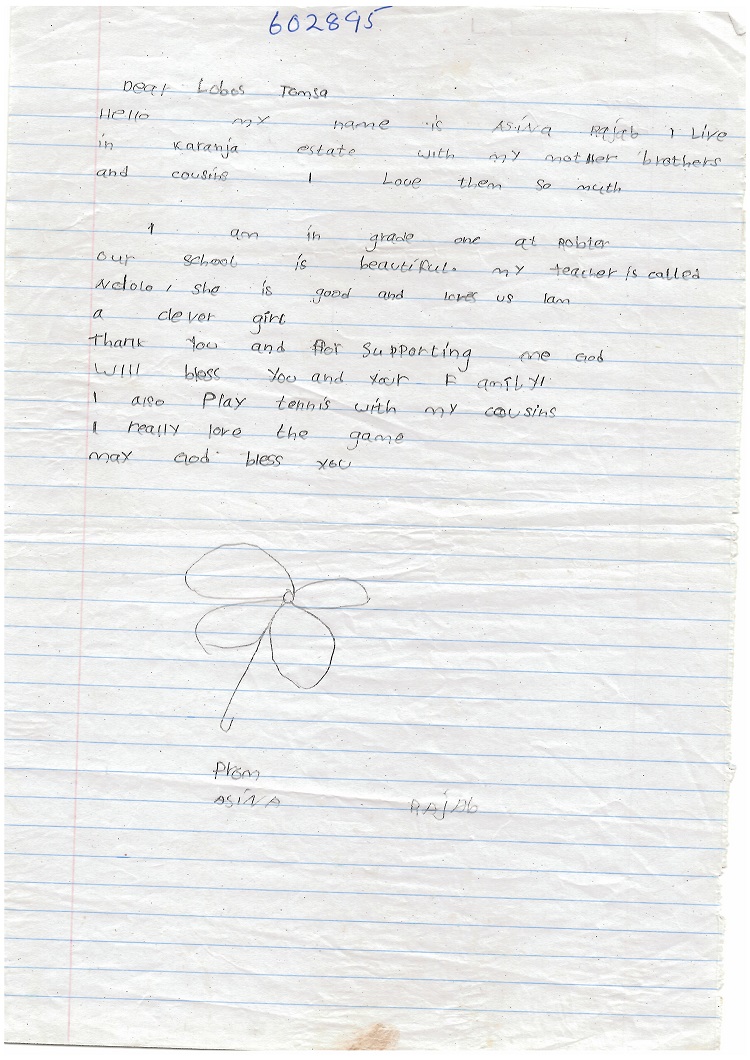 602895
Dear Lobos Tomsa
Hello my name is ASiNA Rajab I Live
in Karanja estate with my mother brothers
and cousins I Love them so muth
I am in grade one at Pobtor
our school is beautiful. my teacher is called
Ndolo, she is good and loves us Iam
a clever girl
thank You and for supporting me God
Will bless You and Your Family
I also Play tennis with my cousins
I really love the game
may God bless you
From
ASiNA RAjAb